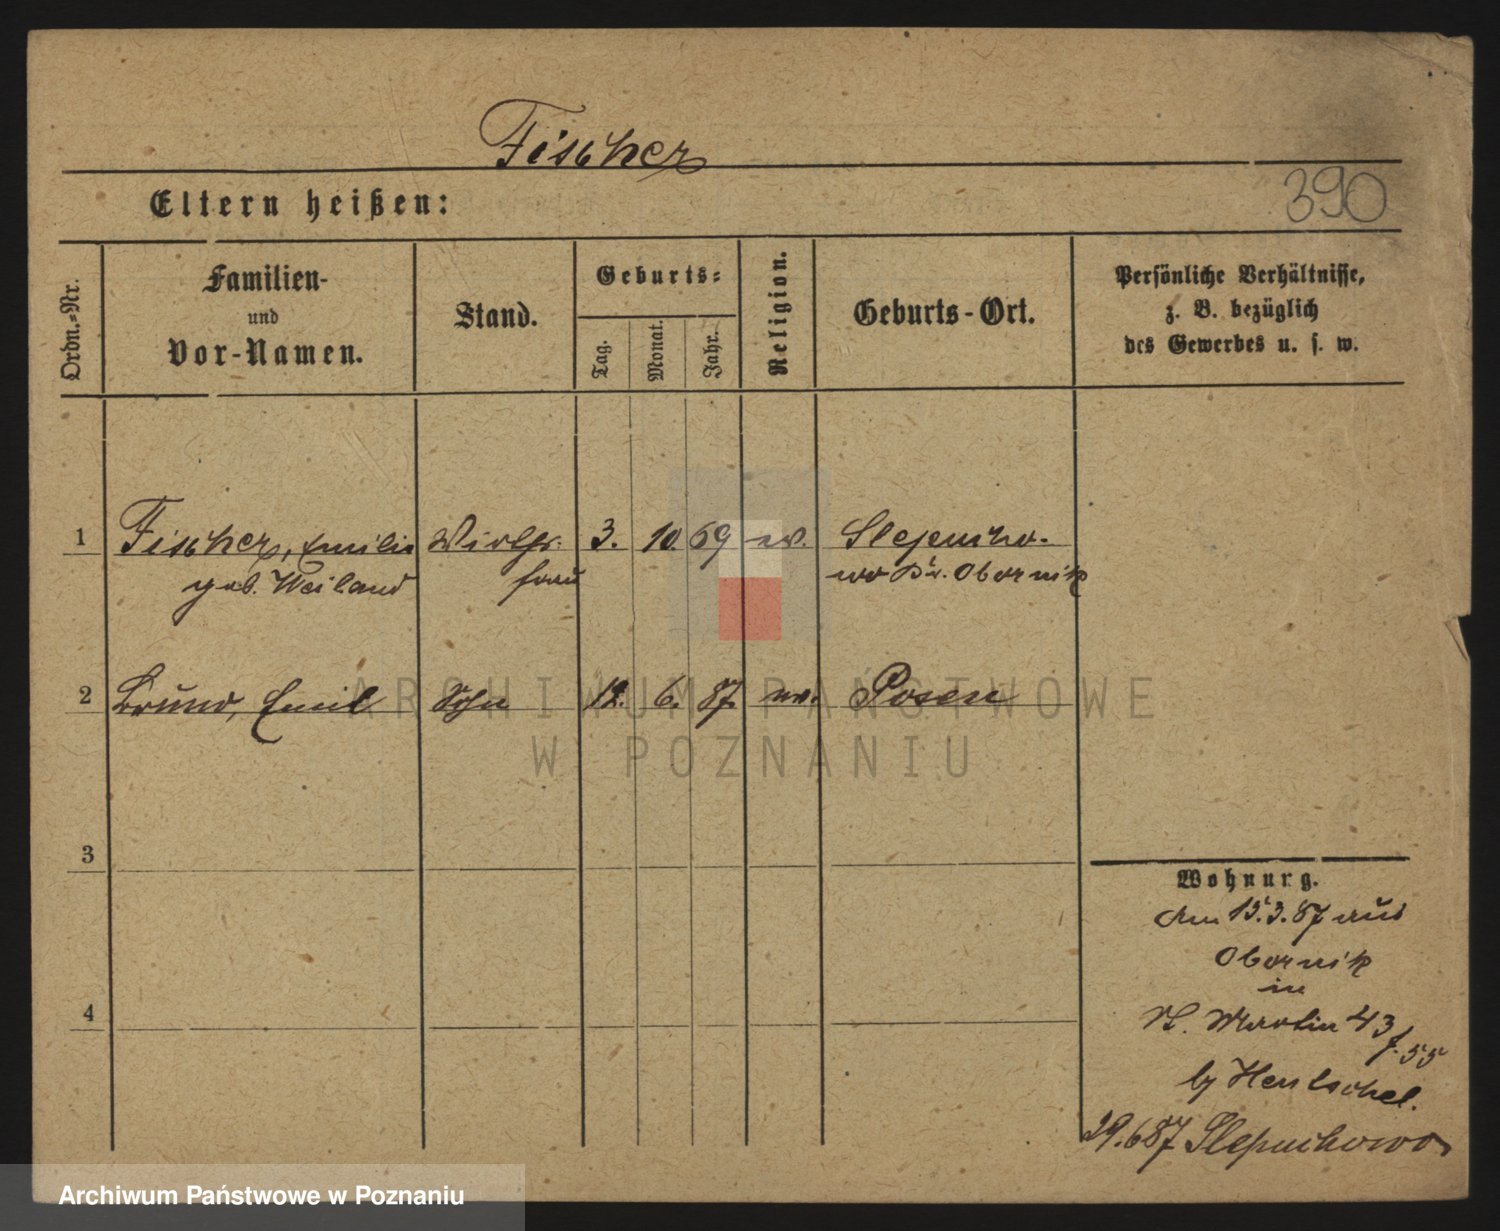 Fischer
Eltern heißen:
390
Ordn.=Nr.
Familien-
und
Vor-Namen.
Stand.
Geburts=
Tag.
Monat.
Jahr.
Religion.
Geburts-Ort.
Persönliche Verhältnisse,
z. B. bezüglich
des Gewerbes u. s. w.
1 Fischer, Emilie Wirths- 3. 10. 69 ev. Slepucho-
geb. Weiland frau wo Kr. Obornik
2 Bruno, Emil Sohn 12. 6. 87. ev. Posen
3
4
Wohnung.
Am 15.3.87 aus
Obornik
in
St. Martin 43
f. 55
by Hentschel.
29.6 87 Slepuchowo
ARCHIWUM PAŃSTWOWE
W POZNANIU
Archiwum Państwowe w Poznaniu